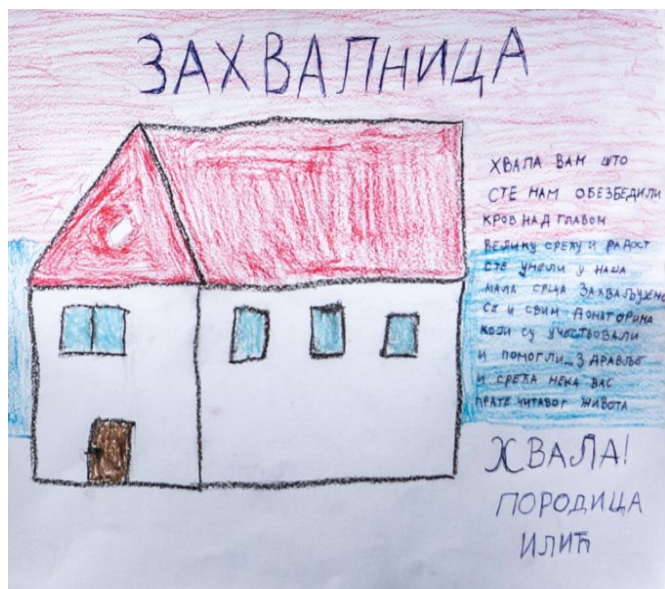 ЗАХВАЛНИЦА
ХВАЛА ВАМ ШТО
СТЕ НАМ ОБЕЗБЕДИЛИ
КРОВ НАД ГЛАВОМ
ВЕЛИКУ СРЕЋУ И РАДОСТ
СТЕ УНЕЛИ У НАША
МАЛА СРЦА ЗАХВАЉУЈЕМО
СЕ И СВИМ ДОНАТОРИМА
КОЈИ СУ УЧЕСТВОВАЛИ
И ПОМОГЛИ_ЗДРАВЉЕ
И СРЕЋА НЕКА ВАС
ПРАТЕ ЧИТАВОГ ЖИВОТА
ХВАЛА!
ПОРОДИЦА
ИЛИЋ